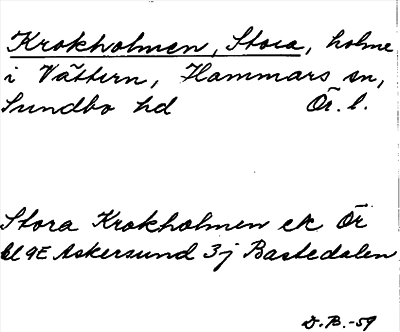 Krokholmen, Stora, holme
i Vättern, Hammars sn,
Sundbo hd Ör. l.
Stora Krokholmen ek Ör
bl 9E Askersund 3j Bastedalen
D.B.-59